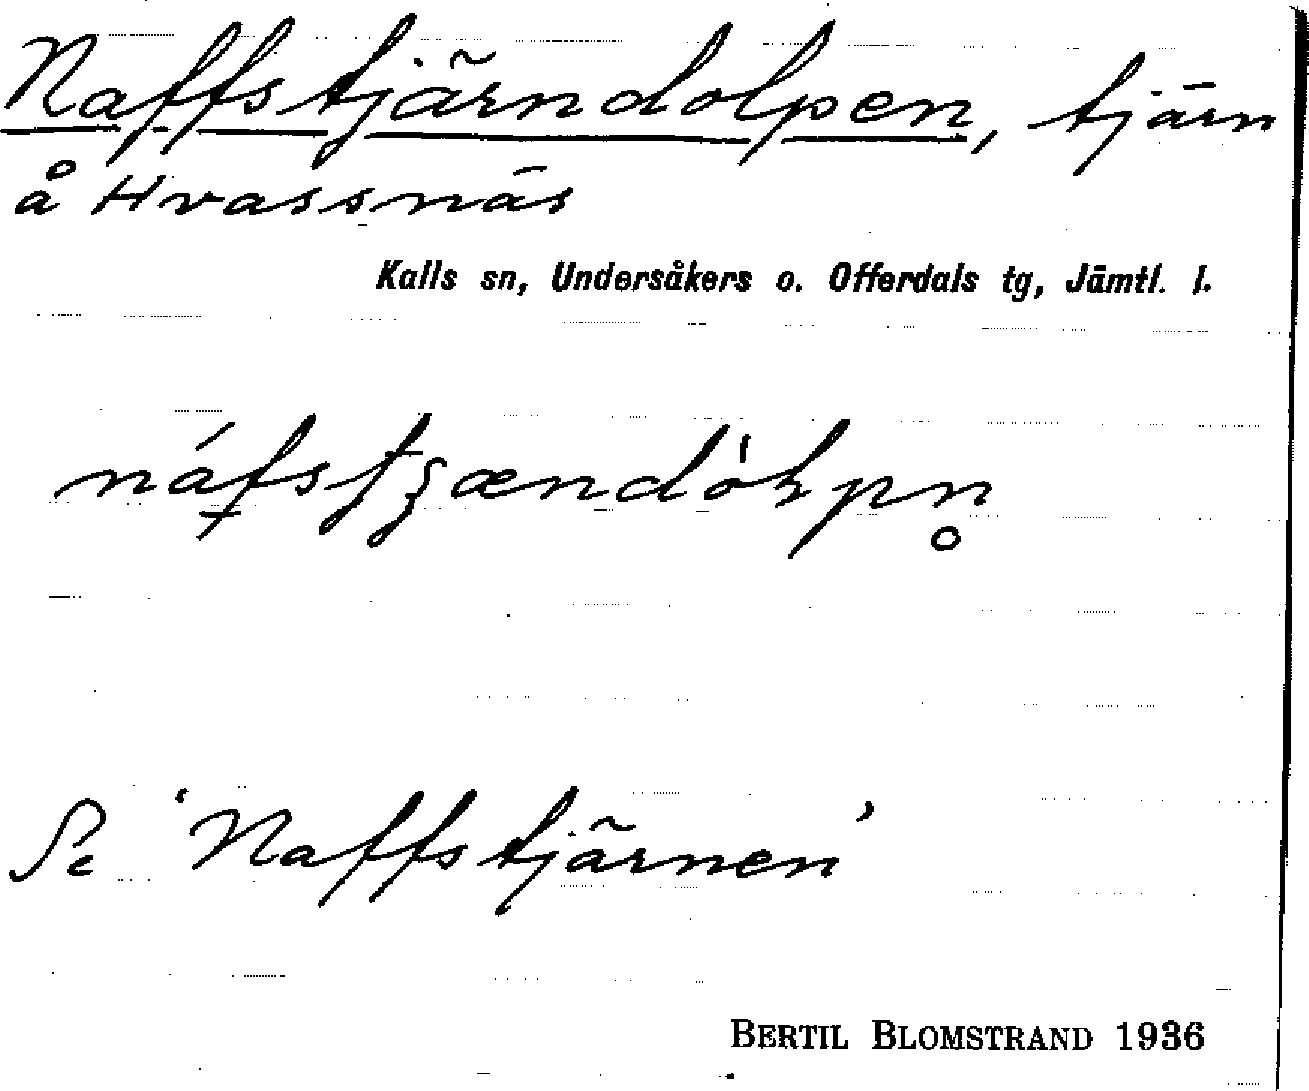 Naffstjärndolpen, tjärn
å Hvassnäs
Kalls sn, Undersåkers o. Offerdals tg, Jämtl. l.
Se 'Naffstjärnen'
BERTIL BLOMSTRAND 1936